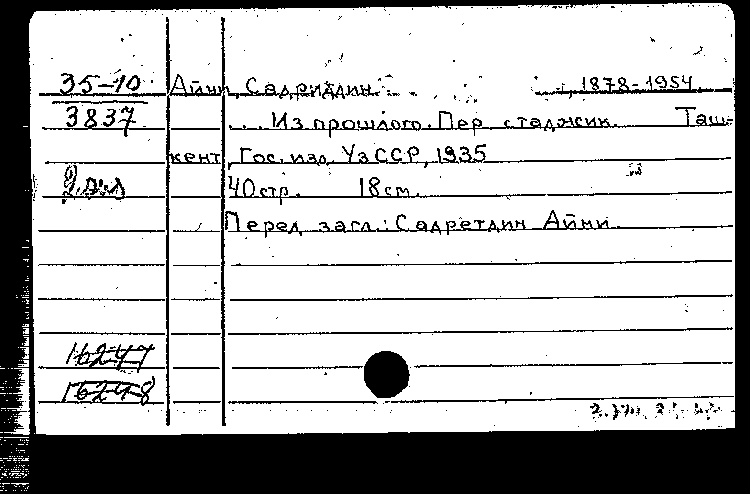 35-10 Айни, Садриддин, 1878-1954.
3837 ... Из прошлого. Пер. с таджик. Таш-
кент, Гос. изд. УзССР, 1935
2 экз 40 стр. 18 см.
Перед загл.: Садретдин Айни.
16247
16248